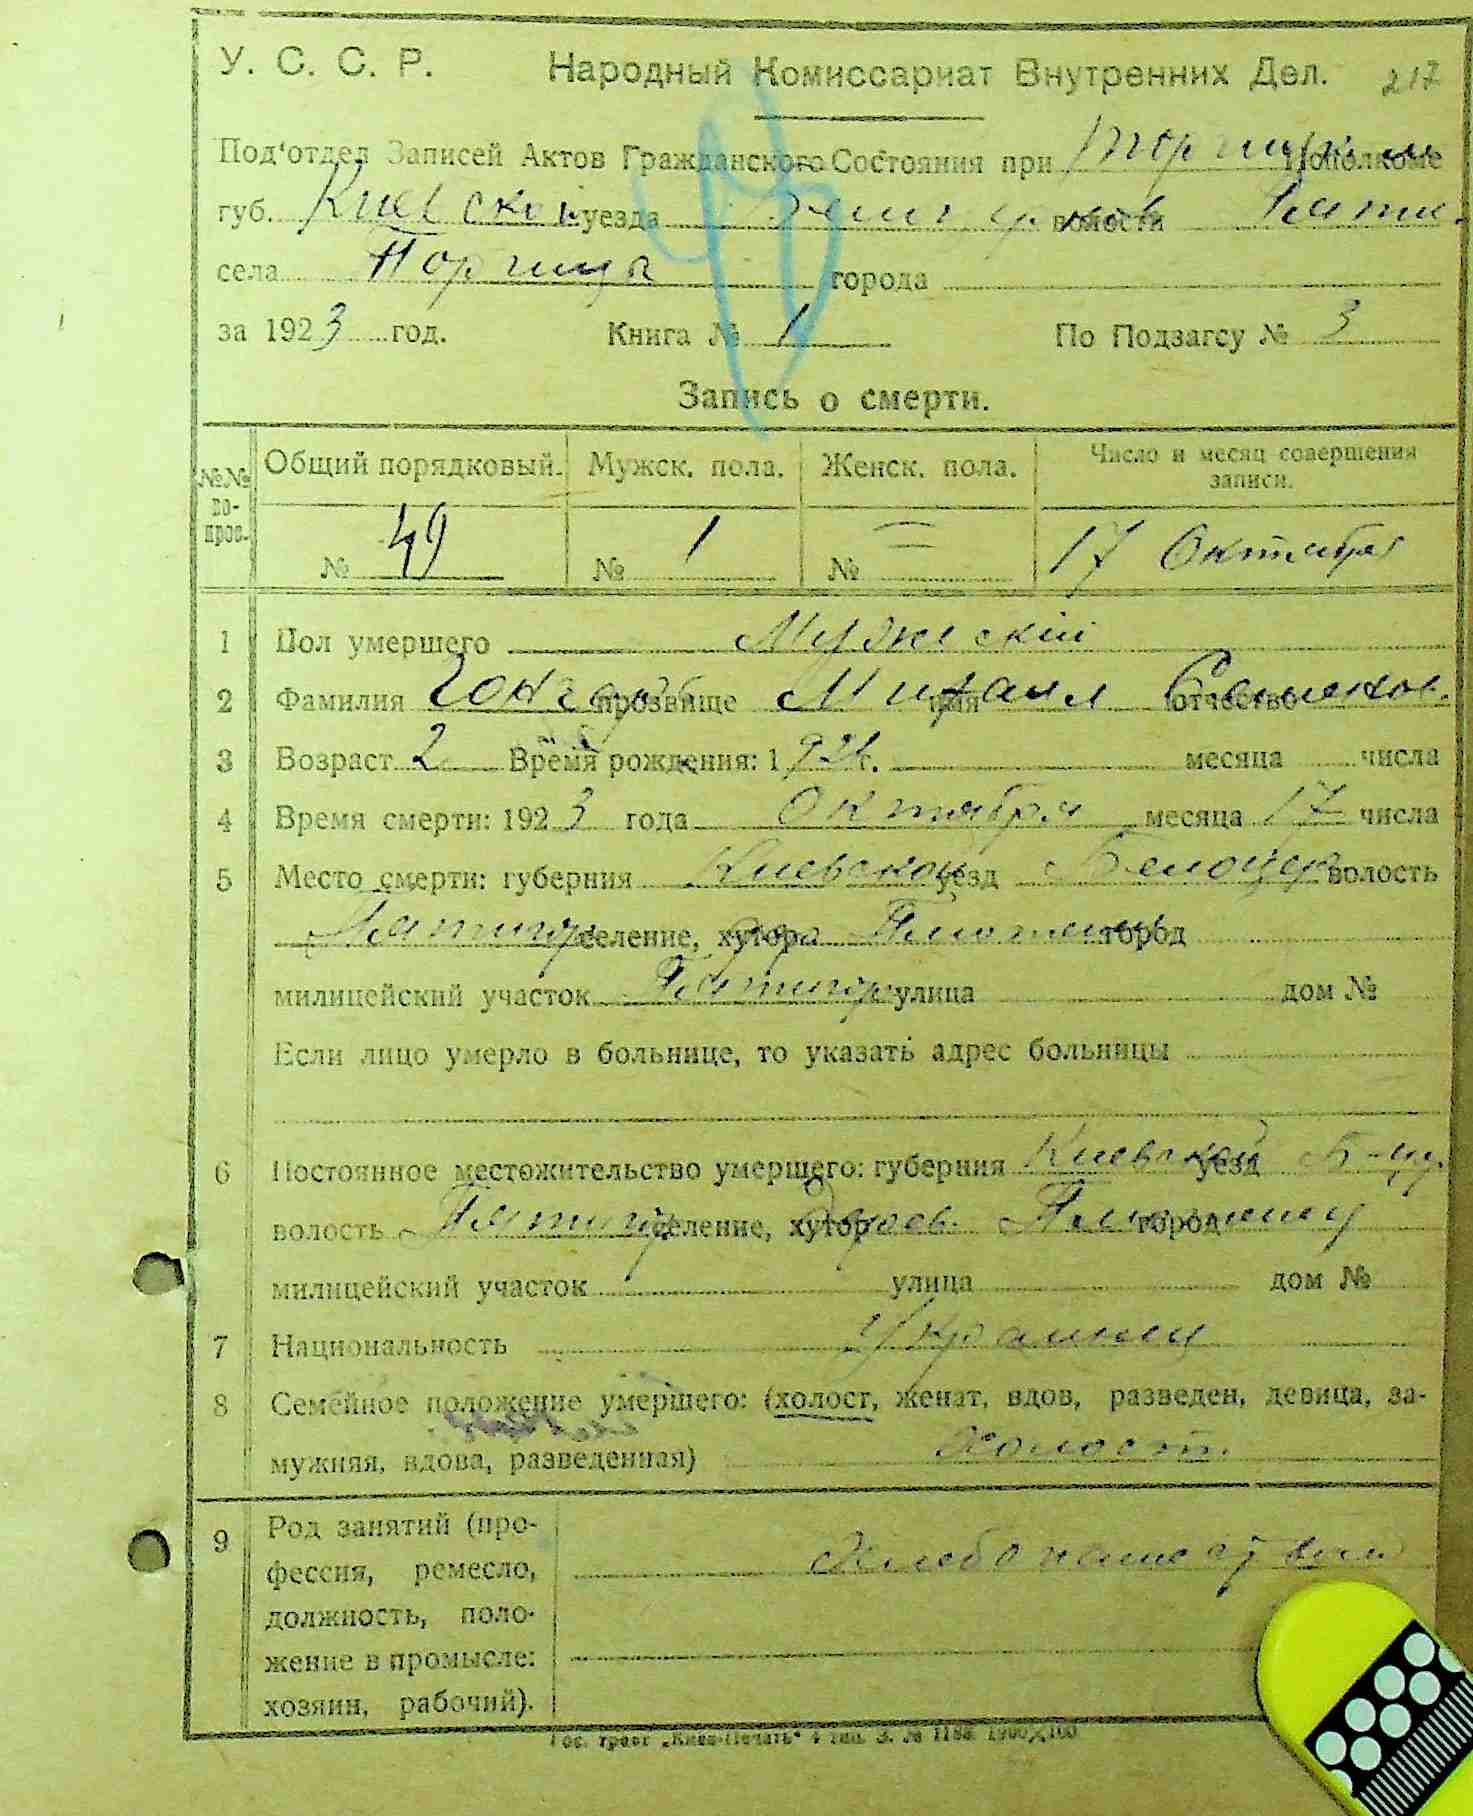 У. С. С. Р. Народный Комиссариат Внутренних Дел. 217
Под'отдел Записей Актов Гражданского Состояния при Исполкоме
губ. Киевской уезда волости
села Торчица города
за 1923 год. Книга № 1 По Подзагсу № 3
Запись о смерти.
№№ во-прос. Общий порядковый. Мужск. пола. Женск. пола. Число и месяц совершения записи.
№ 49 № 1 № = 17 Октября
1 Пол умершего Мужский
2 Фамилия прозвище Михаил имя отчество
3 Возраст 2 Время рождения: 1921 г. месяца числа
4 Время смерти: 1923 года Октября месяца 17 числа
5 Место смерти: губерния Киевской уезд Белоцер волость
Пятигор селение, хутор город
милицейский участок Пятигор улица дом №
Если лицо умерло в больнице, то указать адрес больницы
6 Постоянное местожительство умершего: губерния Киевской уезд Б-Цер.
волость Пятигор селение, хутор дерев. город
милицейский участок улица дом №
7 Национальность Украинец
8 Семейное положение умершего: (холост, женат, вдов, разведен, девица, за-
мужняя, вдова, разведенная) Холост.
9 Род занятий (про-
фессия, ремесло,
должность, поло-
жение в промысле:
хозяин, рабочий).
Гос. трест „Киев-Печать“ 4 тип. З. № 1188